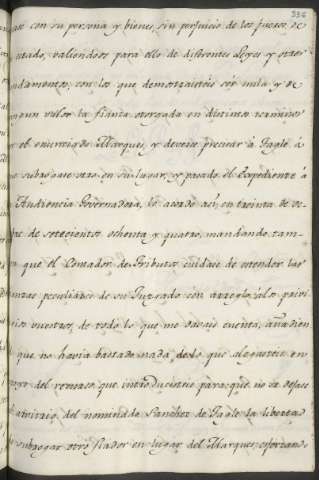 336
con su persona y bienes, sin perjuicio de los fueros de
utado, valiendoos para ello de diferentes Leyes y otros
ndamentos, con los que demostrasteis ser nula y de
un valor la fianza otorgada en distintos terminos
el enunciado Marques, y deverse precisar à Tagle á
subrogase otro en su lugar, y pasado el Expediente à
Audiencia Governadora, lo acordó asi, en treinta de
de setecientos ochenta y quatro, mandando tam-
que el Contador de Tributos cuidase de estender las
peculiares de su Juzgado con arreglo a los
vuestros, de todo lo que me dais cuenta, añadien
que no havia bastado nada de lo que alegasteis en
del remoso que introduciais para que no se dejase
arbitrio del nominado Sanchez de Tagle la libertad
subrogar otro fiador en lugar del Marques, esforzando